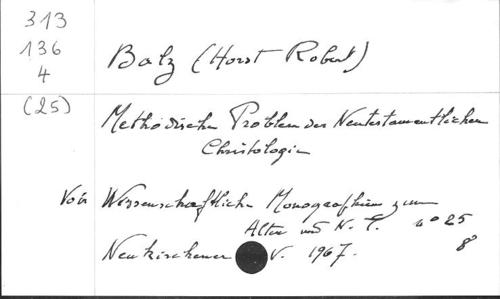 313
136
4
(25)
Balz (Horst Robert)
Methodische Probleme der Neutestamentlichen
Christologie
Voir Wissenschaftliche Monographien zum
Alten und N. T. n° 25
8°
Neukirchener V. 1967.